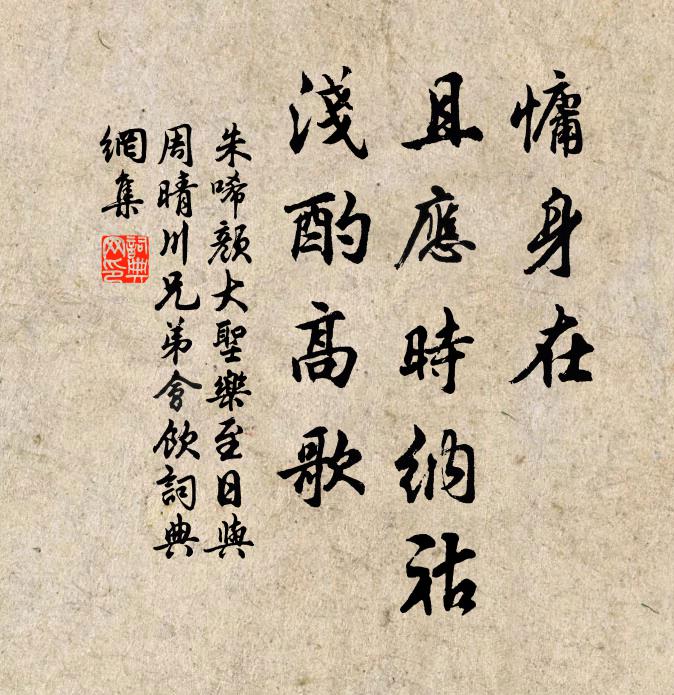 慵身在
且應時納祜
淺酌高歌
朱唏顏大聖樂至日與
周晴川兄弟會飲詞典
網集
詞典
网印